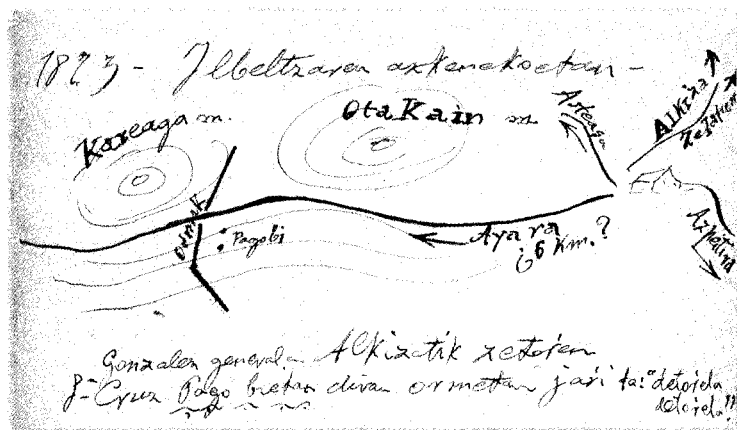 1823 - Ilbeltzaren azkenekoetan -
Kareaga m.
Otakain m
Arteaga
Alkiza
Zelatun
Pagobi
Ayara
¿6 Km.?
Azpeitira
Gonzalez generala Alkizatik zetorren
Cruz Pago bietan divan ormetan jarri ta: "detorela
detorela!!